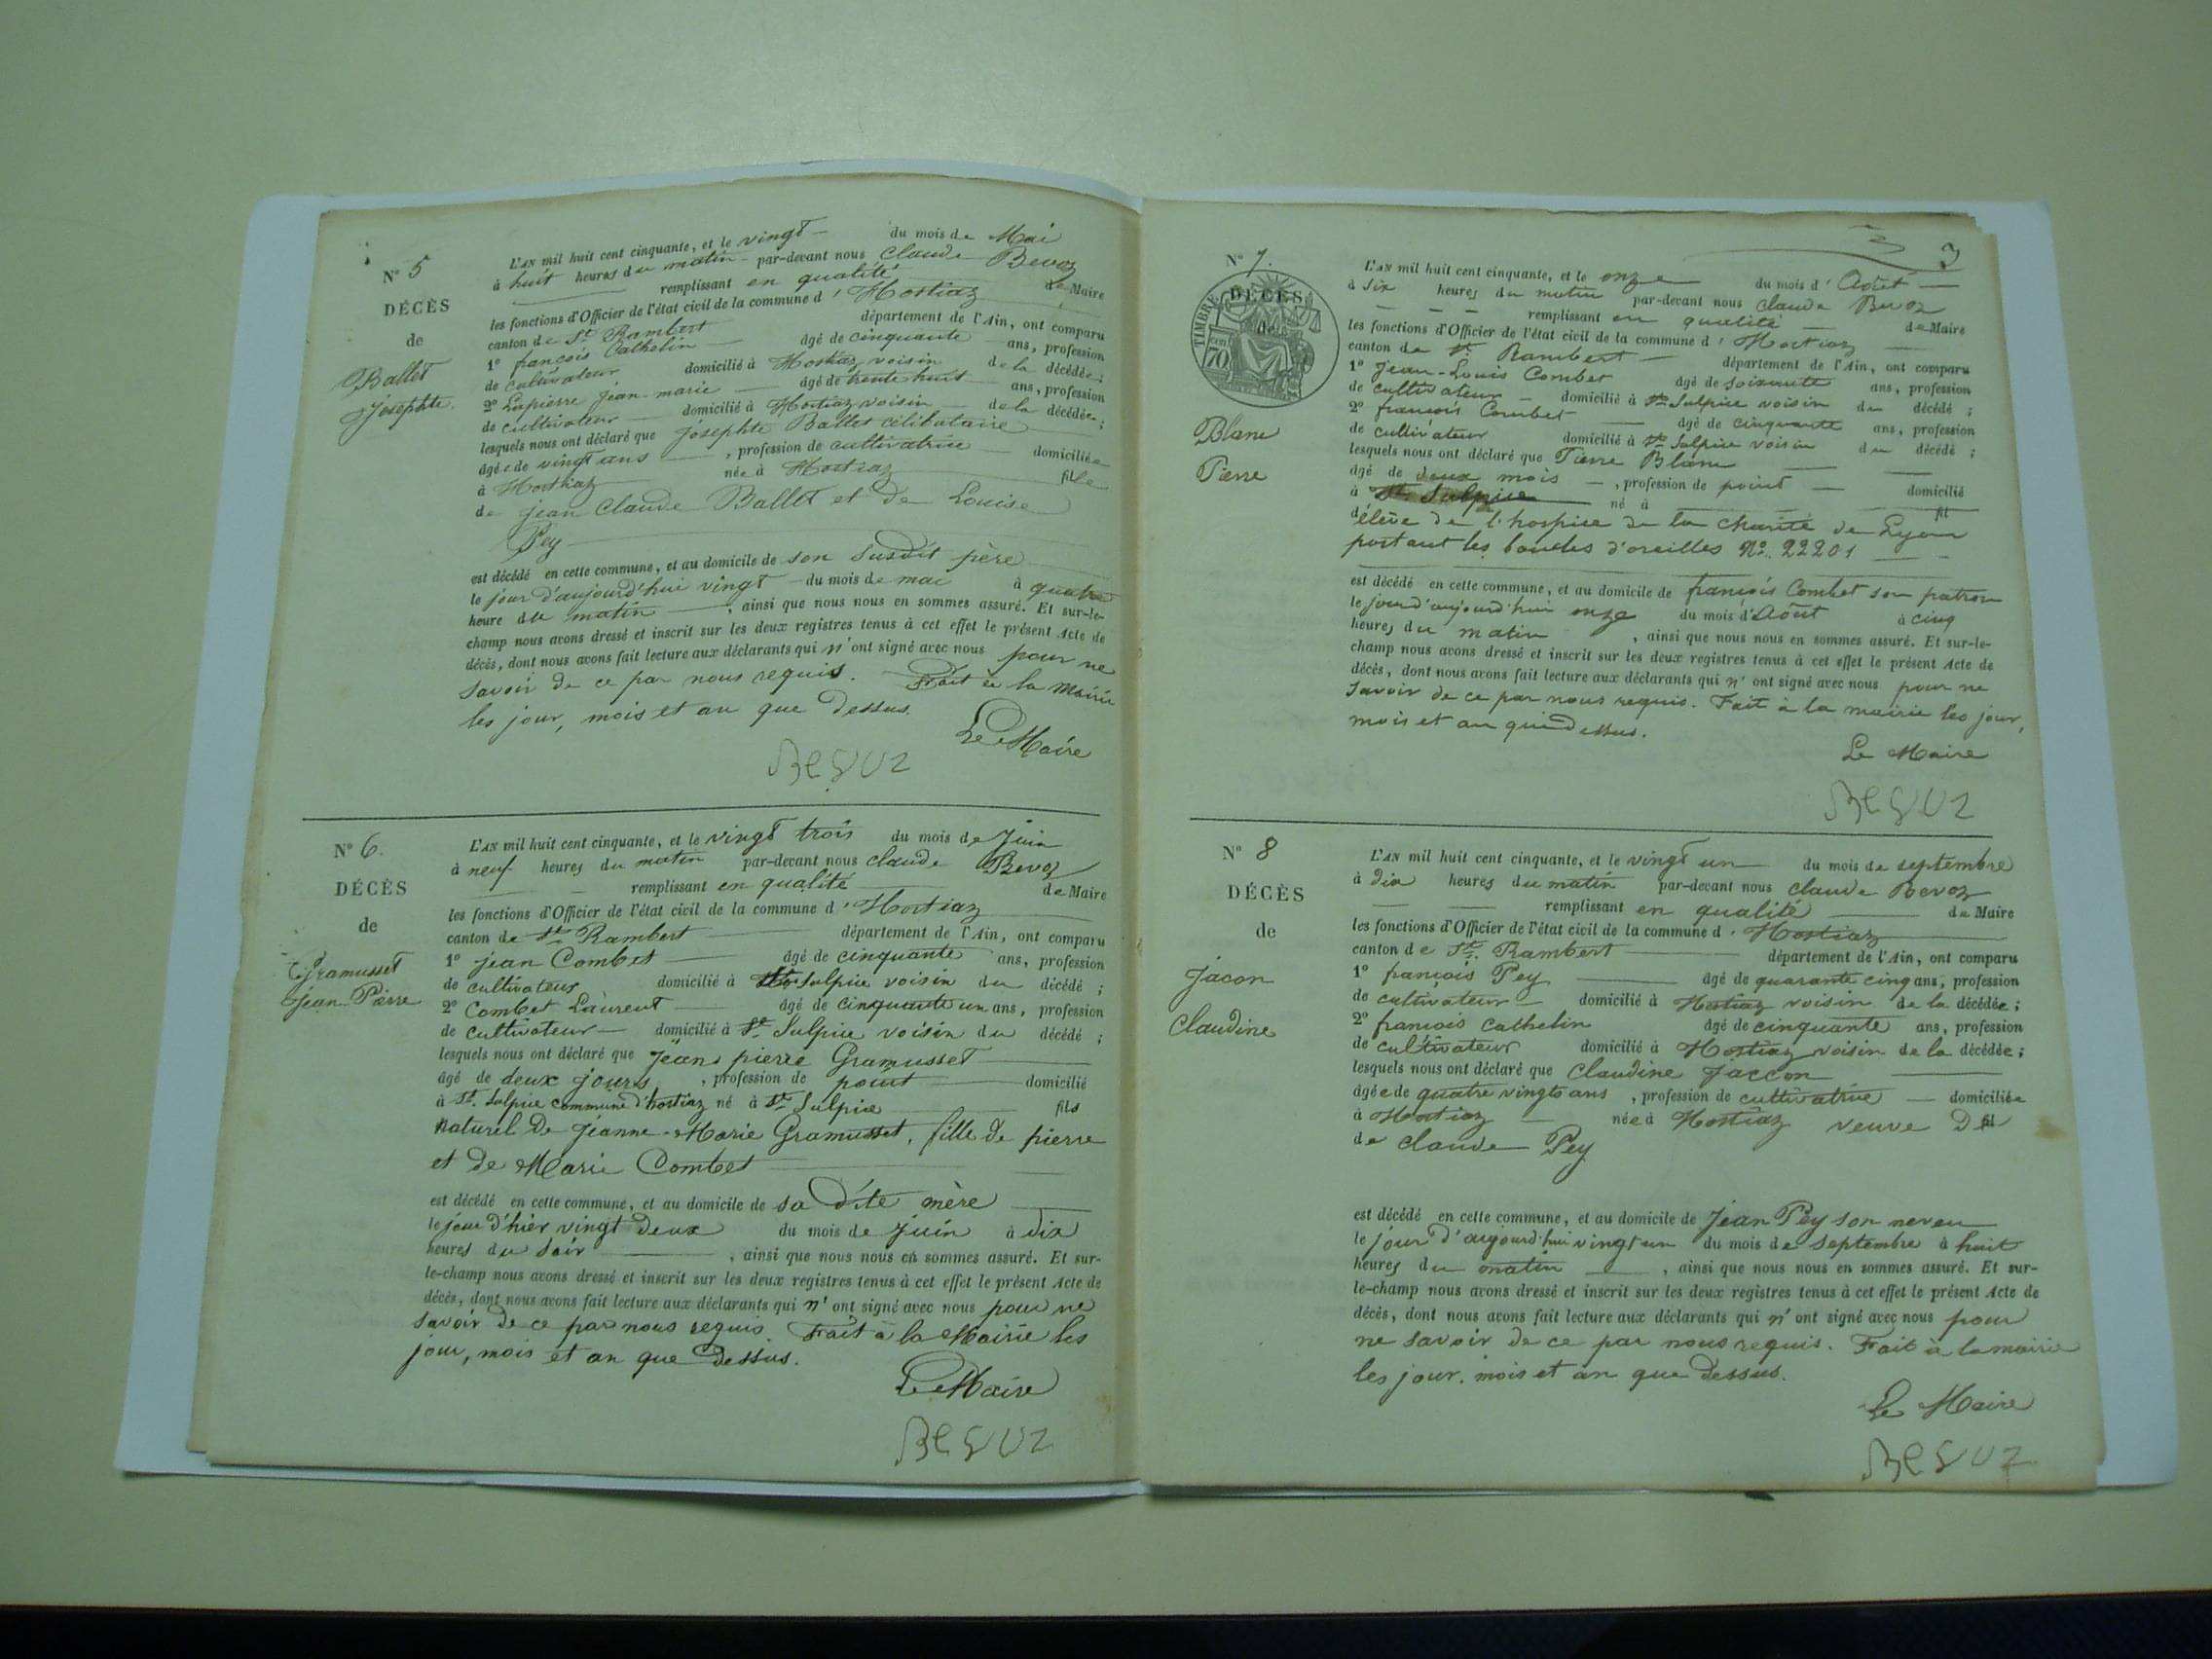 N° 5
DÉCÈS
de
Ballet
Josephte.
L'AN mil huit cent cinquante, et le vingt du mois de Mai
à huit heures du matin par-devant nous Claude Bevoz
remplissant en qualité de Maire
les fonctions d'Officier de l'état civil de la commune d'Hostiaz
canton de St. Rambert département de l'Ain, ont comparu
1° françois Cathelin âgé de cinquante ans, profession
de cultivateur domicilié à Hostiaz voisin de la décédée;
2° Lapierre jean marie âgé de trente huit ans, profession
de cultivateur domicilié à Hostiaz voisin de la décédée;
lesquels nous ont déclaré que josephte Ballet célibataire
âgée de vingt ans, profession de cultivatrice domiciliée
à Hostiaz née à Hostiaz fille
de jean Claude Ballet et de Louise
Pey
est décédé en cette commune, et au domicile de son susdit père
le jour d'aujourd'hui vingt du mois de mai à quatre
heure du matin, ainsi que nous nous en sommes assuré. Et sur-le-
champ nous avons dressé et inscrit sur les deux registres tenus à cet effet le présent Acte de
décès, dont nous avons fait lecture aux déclarants qui n'ont signé avec nous pour ne
savoir de ce par nous requis. Fait à la Mairie
les jour, mois et an que dessus.
Le Maire
Bevoz
N° 6.
DÉCÈS
de
Gramusset
Jean-Pierre
L'AN mil huit cent cinquante, et le vingt trois du mois de Juin
à neuf heures du matin par-devant nous claude Bevoz
remplissant en qualité de Maire
les fonctions d'Officier de l'état civil de la commune d'Hostiaz
canton de St. Rambert département de l'Ain, ont comparu
1° jean Combet âgé de cinquante ans, profession
de cultivateur domicilié à St. Sulpice voisin du décédé;
2° Combet Laurent âgé de cinquante un ans, profession
de cultivateur domicilié à St. Sulpice voisin du décédé;
lesquels nous ont déclaré que Jean pierre Gramusset
âgé de deux jours, profession de point domicilié
à St. Sulpice commune d'hostiaz né à St. Sulpice fils
naturel de Jeanne-Marie Gramusset, fille de pierre
et de Marie Combet
est décédé en cette commune, et au domicile de sa dite mère
le jour d'hier vingt deux du mois de juin à dix
heures du soir, ainsi que nous nous en sommes assuré. Et sur-
le-champ nous avons dressé et inscrit sur les deux registres tenus à cet effet le présent Acte de
décès, dont nous avons fait lecture aux déclarants qui n'ont signé avec nous pour ne
savoir de ce par nous requis. Fait à la Mairie les
jour, mois et an que dessus.
Le Maire
Bevoz
3
N° 7.
DÉCÈS
de
TIMBRE
70
Blanc
Pierre
L'AN mil huit cent cinquante, et le onze du mois d'Août
à six heures du matin par-devant nous claude Bevoz
remplissant en qualité de Maire
les fonctions d'Officier de l'état civil de la commune d'Hostiaz
canton de St. Rambert département de l'Ain, ont comparu
1° Jean-Louis Combet âgé de soixante ans, profession
de cultivateur domicilié à St. Sulpice voisin du décédé;
2° françois Combet âgé de cinquante ans, profession
de cultivateur domicilié à St. Sulpice voisin du décédé;
lesquels nous ont déclaré que Pierre Blanc
âgé de deux mois, profession de point domicilié
à St. Sulpice né à fil
élève de l'hospice de la charité de Lyon
portant les boucles d'oreilles N°. 22201
est décédé en cette commune, et au domicile de françois Combet son patron
le jour d'aujourd'hui onze du mois d'Août à cinq
heures du matin, ainsi que nous nous en sommes assuré. Et sur-le-
champ nous avons dressé et inscrit sur les deux registres tenus à cet effet le présent Acte de
décès, dont nous avons fait lecture aux déclarants qui n'ont signé avec nous pour ne
savoir de ce par nous requis. Fait à la mairie les jour,
mois et an que dessus.
Le Maire
Bevoz
N° 8
DÉCÈS
de
Jacon
Claudine
L'AN mil huit cent cinquante, et le vingt un du mois de septembre
à dix heures du matin par-devant nous claude Bevoz
remplissant en qualité de Maire
les fonctions d'Officier de l'état civil de la commune d'Hostiaz
canton de St. Rambert département de l'Ain, ont comparu
1° françois Pey âgé de quarante cinq ans, profession
de cultivateur domicilié à Hostiaz voisin de la décédée;
2° françois cathelin âgé de cinquante ans, profession
de cultivateur domicilié à Hostiaz voisin de la décédée;
lesquels nous ont déclaré que claudine Jaccon
âgée de quatre vingts ans, profession de cultivatrice domiciliée
à Hostiaz née à Hostiaz veuve
de claude Pey
est décédé en cette commune, et au domicile de Jean Pey son neveu
le jour d'aujourd'hui vingt un du mois de septembre à huit
heures du matin, ainsi que nous nous en sommes assuré. Et sur-
le-champ nous avons dressé et inscrit sur les deux registres tenus à cet effet le présent Acte de
décès, dont nous avons fait lecture aux déclarants qui n'ont signé avec nous pour
ne savoir de ce par nous requis. Fait à la mairie
les jour, mois et an que dessus.
Le Maire
Bevoz